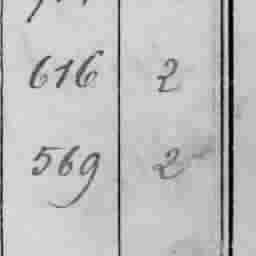 616 2
569 2